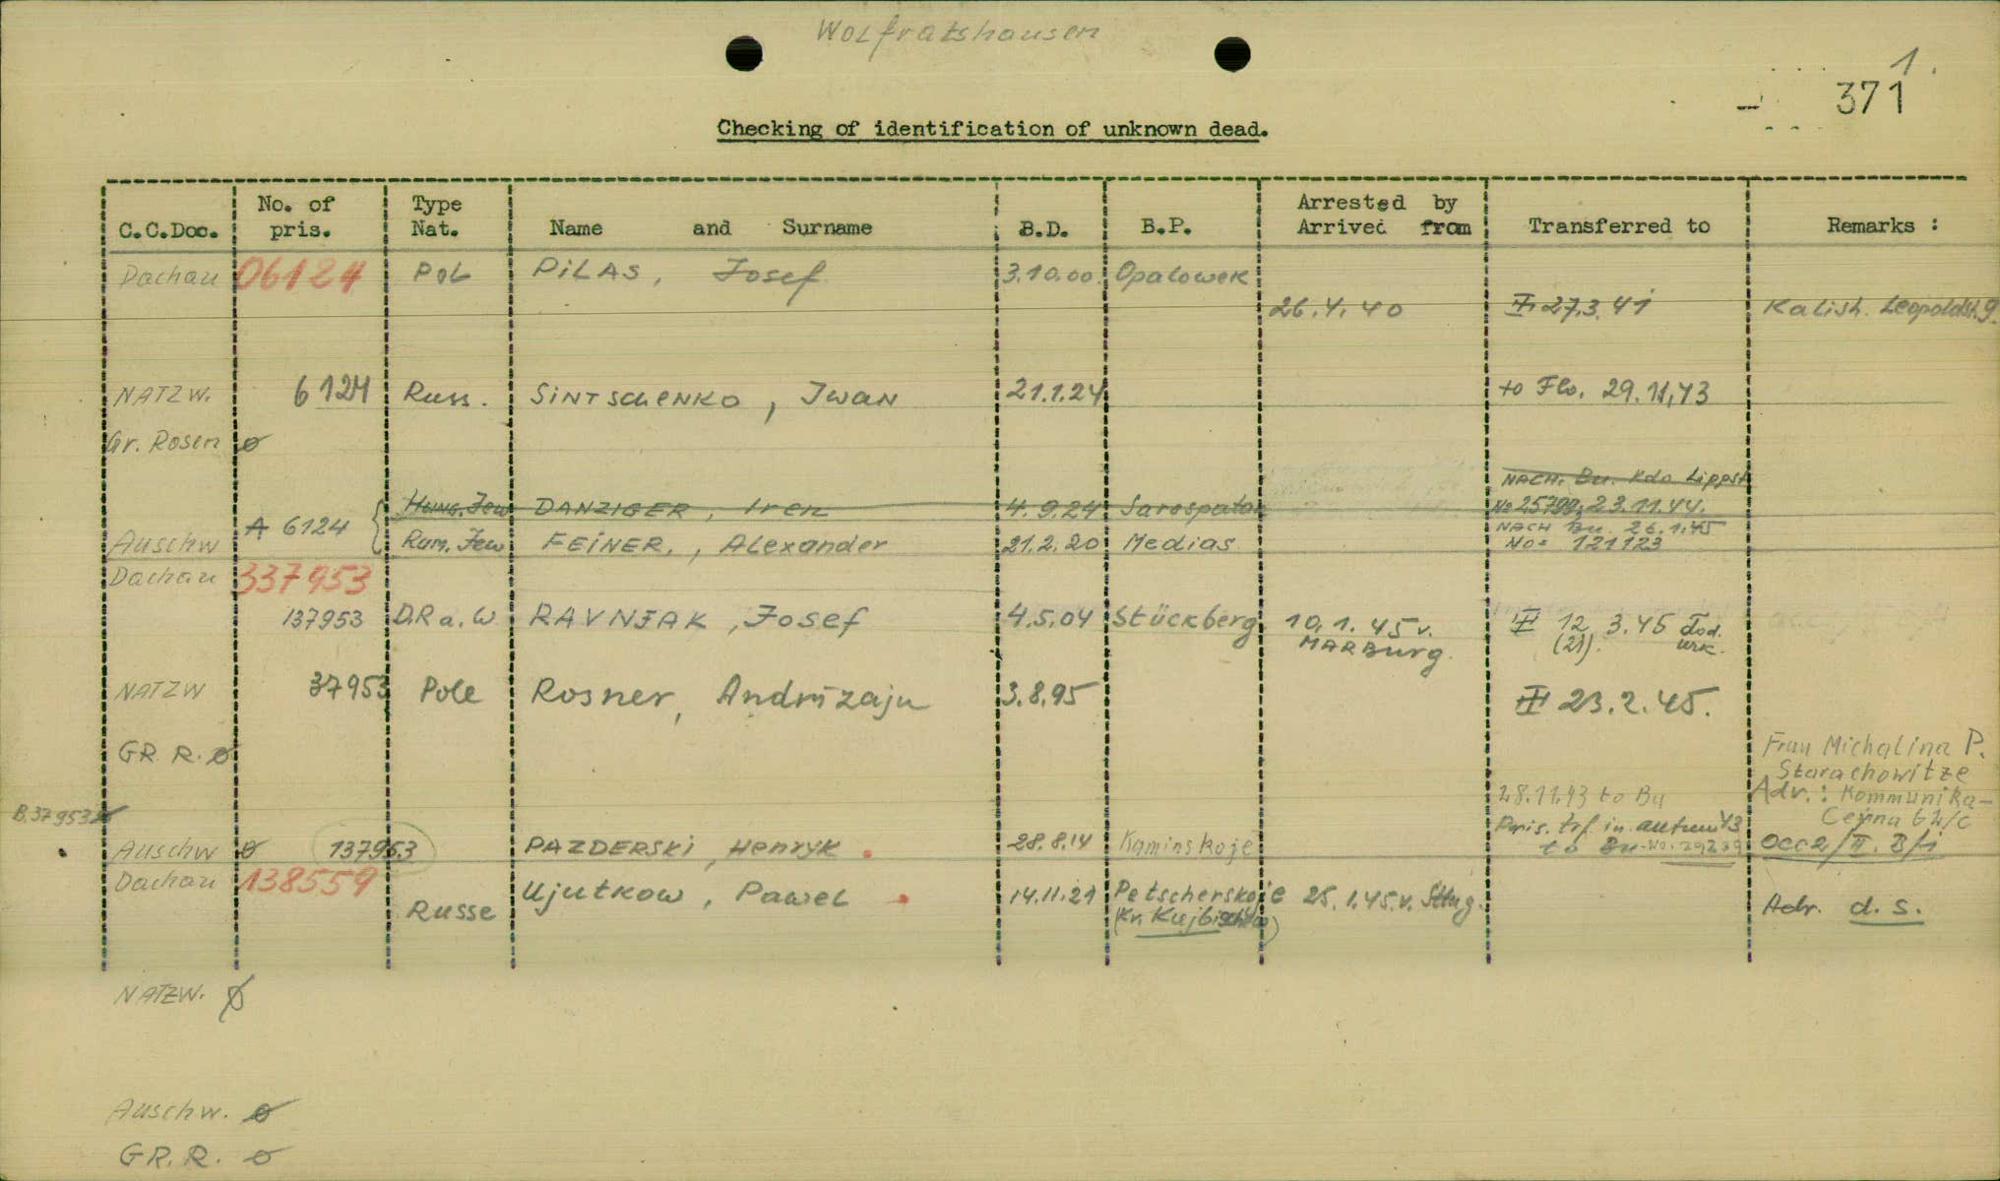 Wolfratshausen
1.
371
Checking of identification of unknown dead.
C.C.Doc. No. of pris. Type Nat. Name and Surname B.D. B.P. Arrested by Arrived from Transferred to Remarks :
Dachau 06124 Pol PiLAS, Josef 3.10.00 Opatowek
26.4.40 27.3.41 Kalish. Leopoldst. 9.
NATZW. 6124 Russ. SiNTSchENKO, Iwan 21.1.24 to Flo. 29.11.43
Gr. Rosen ø
NACH. Bu. Kdo Lippst
Hung. Jew DANZIGER, Iren 4.9.24 Sarospatak No 25799, 23.11.44.
A 6124
NACH Bu. 26.1.45
Auschw Rum. Jew FEiNER, Alexander 21.2.20 Medias No= 121123
Dachau 337953
137953 D.R a. W RAVNJAK, Josef 4.5.04 Stückberg 10.1.45 v. MARBurg. 12. 3.45 Tod. urk.
(21).
NATZW 37953 Pole Rosner, Andrizaju 3.8.95 23.2.45.
GR. R. ø
Frau Michalina P.
Starachowitze
28.11.43 to Bu Adr.: Kommunika-
B.37953 ø Pris. trf. in autum 43 Cejna 64/c
Auschw ø 137953 PAZDERSKi, Henryk 28.8.14 Kaminskoje to Bu-No. 29239 Occ2/II. B/1
Dachau 138559
Russe Ujutkow, Pawel 14.11.21 Petscherskoje 25.1.45.v. Sttug. Adr. d. s.
NATZW. ø
Auschw. ø
GR. R. ø